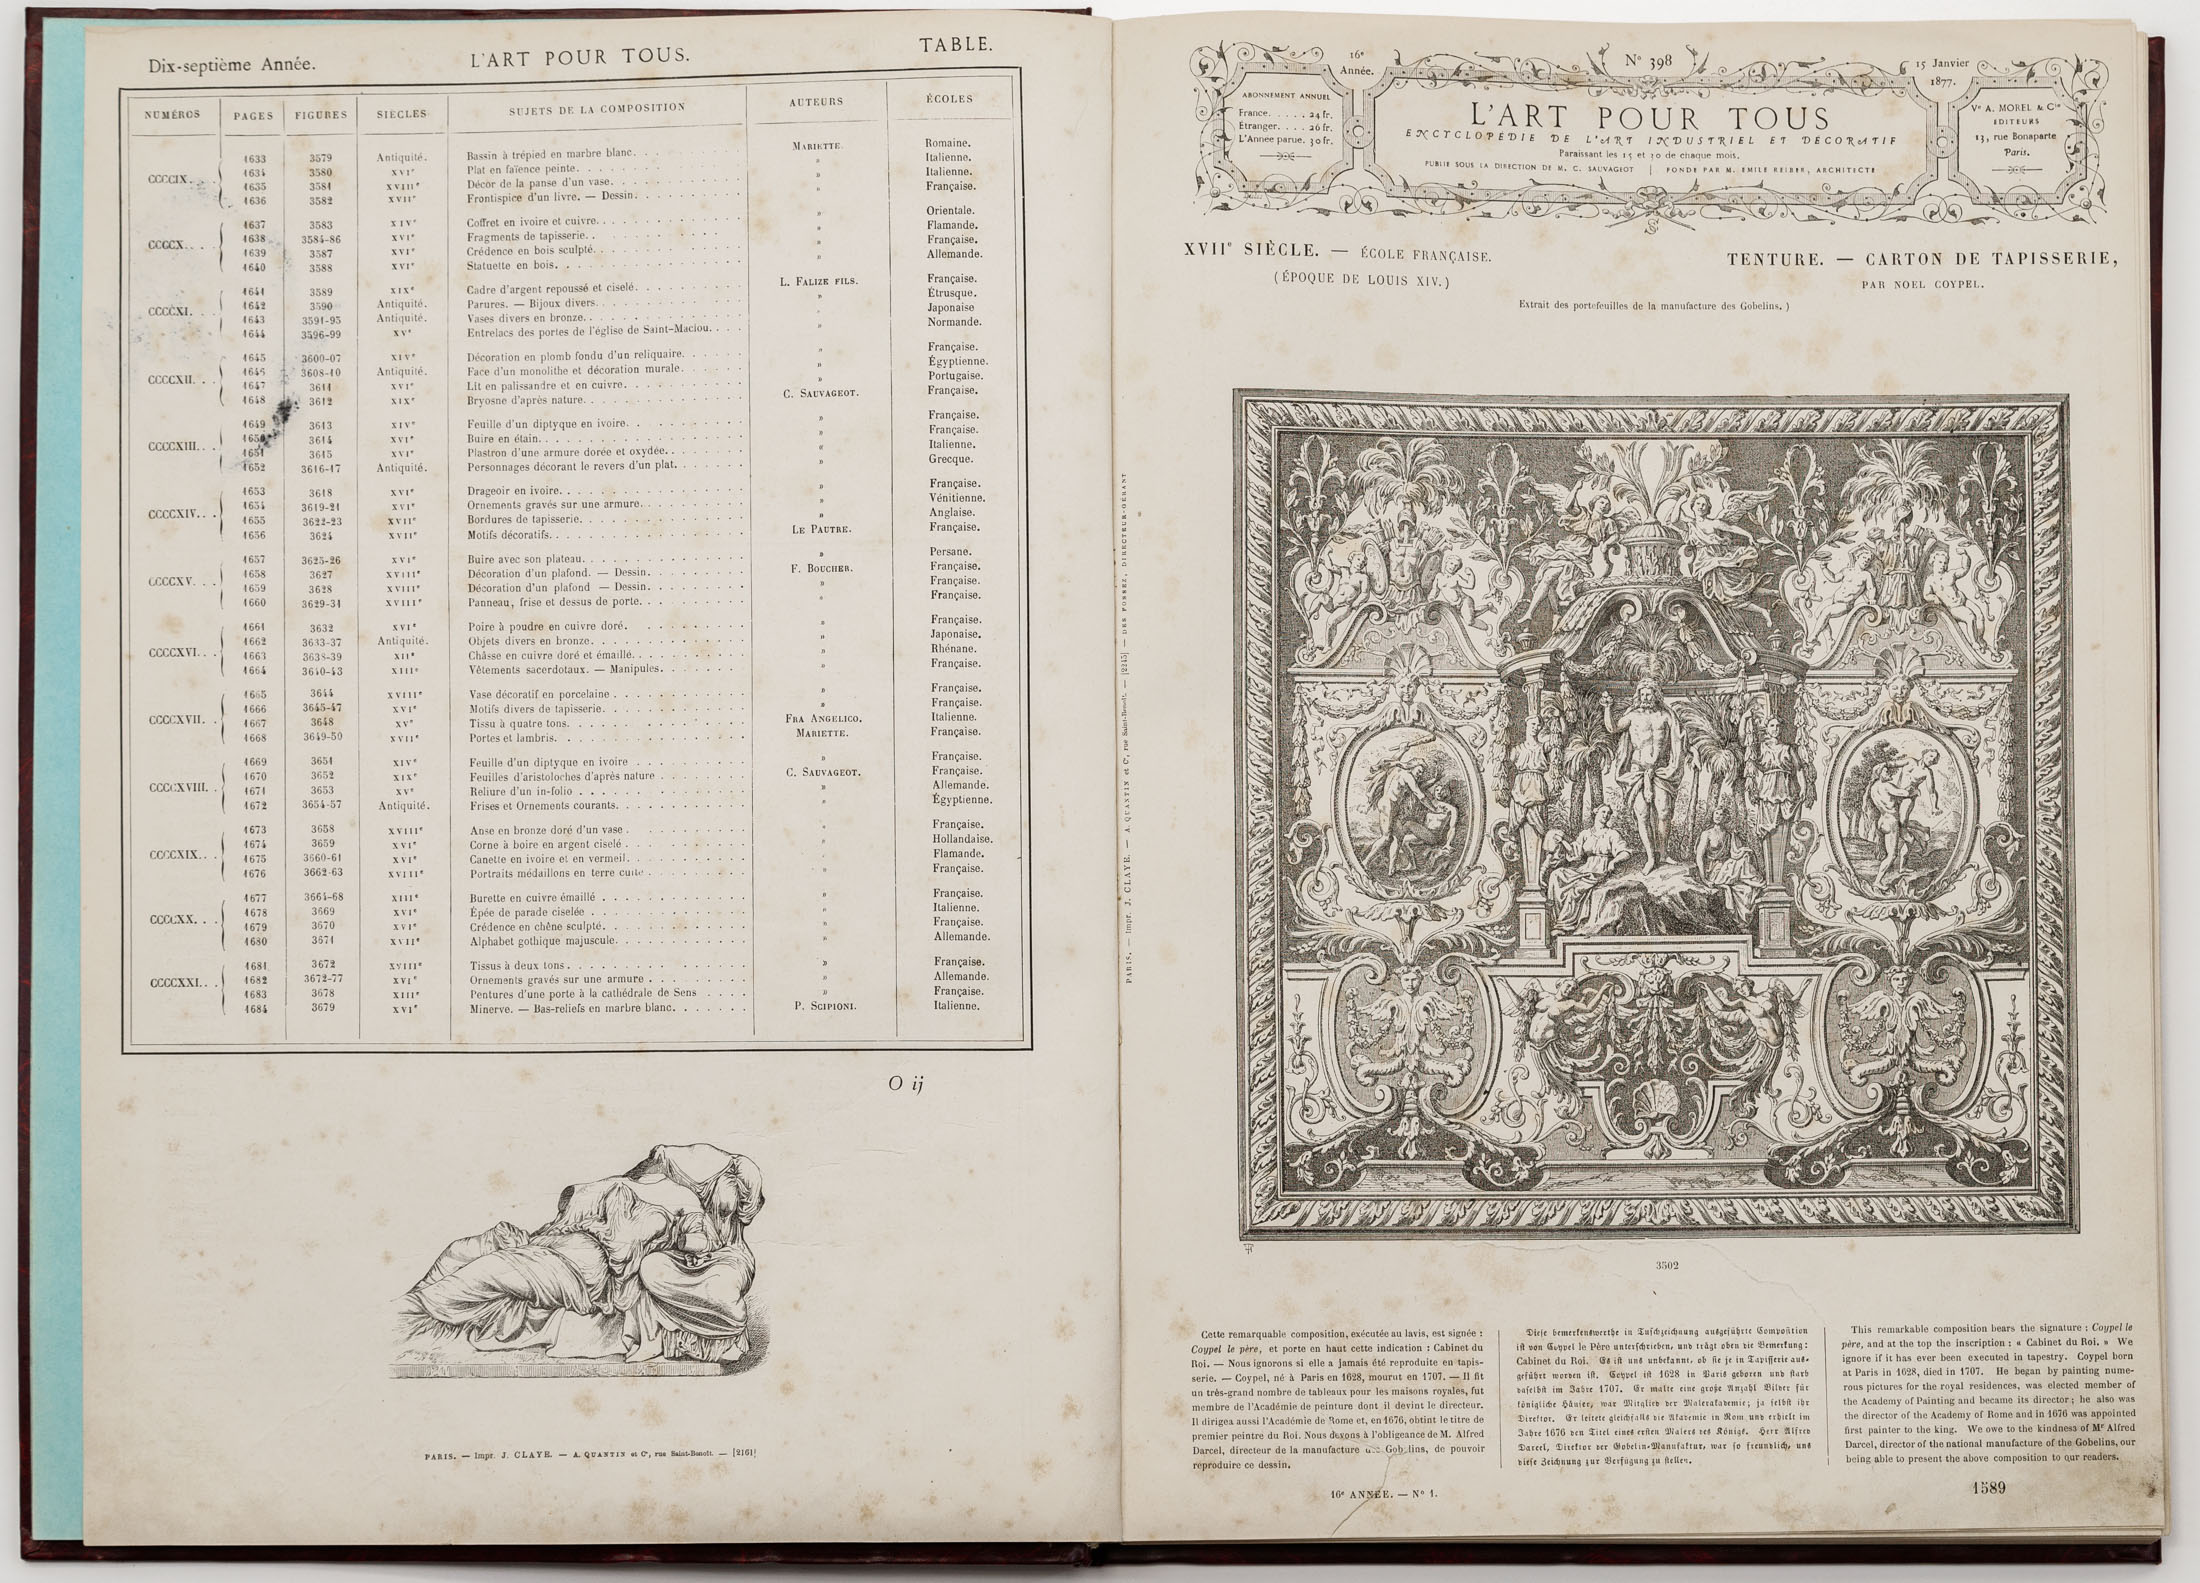 Dix-septième Année.
L'ART POUR TOUS.
TABLE.
NUMÉROS PAGES FIGURES SIÈCLES SUJETS DE LA COMPOSITION AUTEURS ÉCOLES
CCCCIX. 1633 3579 Antiquité. Bassin à trépied en marbre blanc. MARIETTE. Romaine.
1634 3580 XVIe Plat en faïence peinte. » Italienne.
1635 3581 XVIIIe Décor de la panse d'un vase. » Italienne.
1636 3582 XVIIe Frontispice d'un livre. — Dessin. » Française.
CCCCX. 1637 3583 XIVe Coffret en ivoire et cuivre. » Orientale.
1638 3584-86 XVIe Fragments de tapisserie. » Flamande.
1639 3587 XVIe Crédence en bois sculpté. » Française.
1640 3588 XVIe Statuette en bois. » Allemande.
CCCCXI. 1641 3589 XIXe Cadre d'argent repoussé et ciselé. L. FALIZE FILS. Française.
1642 3590 Antiquité. Parures. — Bijoux divers. » Étrusque.
1643 3591-95 Antiquité. Vases divers en bronze. » Japonaise
1644 3596-99 XVe Entrelacs des portes de l'église de Saint-Maclou. » Normande.
CCCCXII. 1645 3600-07 XIVe Décoration en plomb fondu d'un reliquaire. » Française.
1646 3608-10 Antiquité. Face d'un monolithe et décoration murale. » Égyptienne.
1647 3611 XVIe Lit en palissandre et en cuivre. » Portugaise.
1648 3612 XIXe Bryosne d'après nature. C. SAUVAGEOT. Française.
CCCCXIII. 1649 3613 XIVe Feuille d'un diptyque en ivoire. » Française.
1650 3614 XVIe Buire en étain. » Française.
1651 3615 XVIe Plastron d'une armure dorée et oxydée. » Italienne.
1652 3616-17 Antiquité. Personnages décorant le revers d'un plat. » Grecque.
CCCCXIV. 1653 3618 XVIe Drageoir en ivoire. » Française.
1654 3619-21 XVIe Ornements gravés sur une armure. » Vénitienne.
1655 3622-23 XVIIe Bordures de tapisserie. » Anglaise.
1656 3624 XVIIe Motifs décoratifs. LE PAUTRE. Française.
CCCCXV. 1657 3625-26 XVIe Buire avec son plateau. » Persane.
1658 3627 XVIIIe Décoration d'un plafond. — Dessin. F. BOUCHER. Française.
1659 3628 XVIIIe Décoration d'un plafond — Dessin. » Française.
1660 3629-31 XVIIIe Panneau, frise et dessus de porte. » Française.
CCCCXVI. 1661 3632 XVIe Poire à poudre en cuivre doré. » Française.
1662 3633-37 Antiquité. Objets divers en bronze. » Japonaise.
1663 3638-39 XIIe Châsse en cuivre doré et émaillé. » Rhénane.
1664 3640-43 XIIIe Vêtements sacerdotaux. — Manipules. » Française.
CCCCXVII. 1665 3644 XVIIIe Vase décoratif en porcelaine » Française.
1666 3645-47 XVIe Motifs divers de tapisserie. » Française.
1667 3648 XVe Tissu à quatre tons. FRA ANGELICO. Italienne.
1668 3649-50 XVIIe Portes et lambris. MARIETTE. Française.
CCCCXVIII. 1669 3651 XIVe Feuille d'un diptyque en ivoire » Française.
1670 3652 XIXe Feuilles d'aristoloches d'après nature C. SAUVAGEOT. Française.
1671 3653 XVe Reliure d'un in-folio » Allemande.
1672 3654-57 Antiquité. Frises et Ornements courants. » Égyptienne.
CCCCXIX. 1673 3658 XVIIIe Anse en bronze doré d'un vase. » Française.
1674 3659 XVIe Corne à boire en argent ciselé » Hollandaise.
1675 3660-61 XVIe Canette en ivoire et en vermeil. » Flamande.
1676 3662-63 XVIIIe Portraits médaillons en terre cuite » Française.
CCCCXX. 1677 3664-68 XIIIe Burette en cuivre émaillé » Française.
1678 3669 XVIe Épée de parade ciselée » Italienne.
1679 3670 XVIe Crédence en chêne sculpté. » Française.
1680 3671 XVIIe Alphabet gothique majuscule. » Allemande.
CCCCXXI. 1681 3672 XVIIIe Tissus à deux tons. » Française.
1682 3672-77 XVIe Ornements gravés sur une armure » Allemande.
1683 3678 XIIIe Pentures d'une porte à la cathédrale de Sens » Française.
1684 3679 XVIe Minerve. — Bas-reliefs en marbre blanc. P. SCIPIONI. Italienne.
O ij
PARIS. — Impr. J. CLAYE. — A. QUANTIN et Ce, rue Saint-Benoît. — [2161]
PARIS. — Impr. J. CLAYE. — A. QUANTIN et Ce, rue Saint-Benoît. — [2245] — DES FOSSEZ, DIRECTEUR-GÉRANT
16e Année.
N° 398
15 Janvier 1877.
ABONNEMENT ANNUEL
France. . . . . 24 fr.
Étranger. . . . 26 fr.
L'Année parue. 30 fr.
L'ART POUR TOUS
ENCYCLOPÉDIE DE L'ART INDUSTRIEL ET DÉCORATIF
Paraissant les 15 et 30 de chaque mois.
PUBLIÉ SOUS LA DIRECTION DE M. C. SAUVAGEOT | FONDÉ PAR M. EMILE REIBER, ARCHITECTE
Ve A. MOREL & Cie
EDITEURS
13, rue Bonaparte
Paris.
XVIIe SIÈCLE. — ÉCOLE FRANÇAISE.
(ÉPOQUE DE LOUIS XIV.)
TENTURE. — CARTON DE TAPISSERIE,
PAR NOEL COYPEL.
Extrait des portefeuilles de la manufacture des Gobelins. )
3502
Cette remarquable composition, exécutée au lavis, est signée :
Coypel le père, et porte en haut cette indication : Cabinet du
Roi. — Nous ignorons si elle a jamais été reproduite en tapis-
serie. — Coypel, né à Paris en 1628, mourut en 1707. — Il fit
un très-grand nombre de tableaux pour les maisons royales, fut
membre de l'Académie de peinture dont il devint le directeur.
Il dirigea aussi l'Académie de Rome et, en 1676, obtint le titre de
premier peintre du Roi. Nous devons à l'obligeance de M. Alfred
Darcel, directeur de la manufacture des Gobelins, de pouvoir
reproduire ce dessin.
Diese bemerkenswerthe in Tuschzeichnung ausgeführte Composition
ist von Coypel le Père unterschrieben, und trägt oben die Bemerkung:
Cabinet du Roi. Es ist uns unbekannt, ob sie je in Tapisserie aus-
geführt worden ist. Coypel ist 1628 in Paris geboren und starb
daselbst im Jahre 1707. Er malte eine große Anzahl Bilder für
königliche Häuser, war Mitglied der Malerakademie; ja selbst ihr
Direktor. Er leitete gleichfalls die Akademie in Rom und erhielt im
Jahre 1676 den Titel eines ersten Malers des Königs. Herr Alfred
Darcel, Direktor der Gobelin-Manufaktur, war so freundlich, uns
diese Zeichnung zur Verfügung zu stellen.
This remarkable composition bears the signature : Coypel le
père, and at the top the inscription : « Cabinet du Roi. » We
ignore if it has ever been executed in tapestry. Coypel born
at Paris in 1628, died in 1707. He began by painting nume-
rous pictures for the royal residences, was elected member of
the Academy of Painting and became its director; he also was
the director of the Academy of Rome and in 1676 was appointed
first painter to the king. We owe to the kindness of Mr Alfred
Darcel, director of the national manufacture of the Gobelins, our
being able to present the above composition to our readers.
16e ANNÉE. — N° 1.
1589